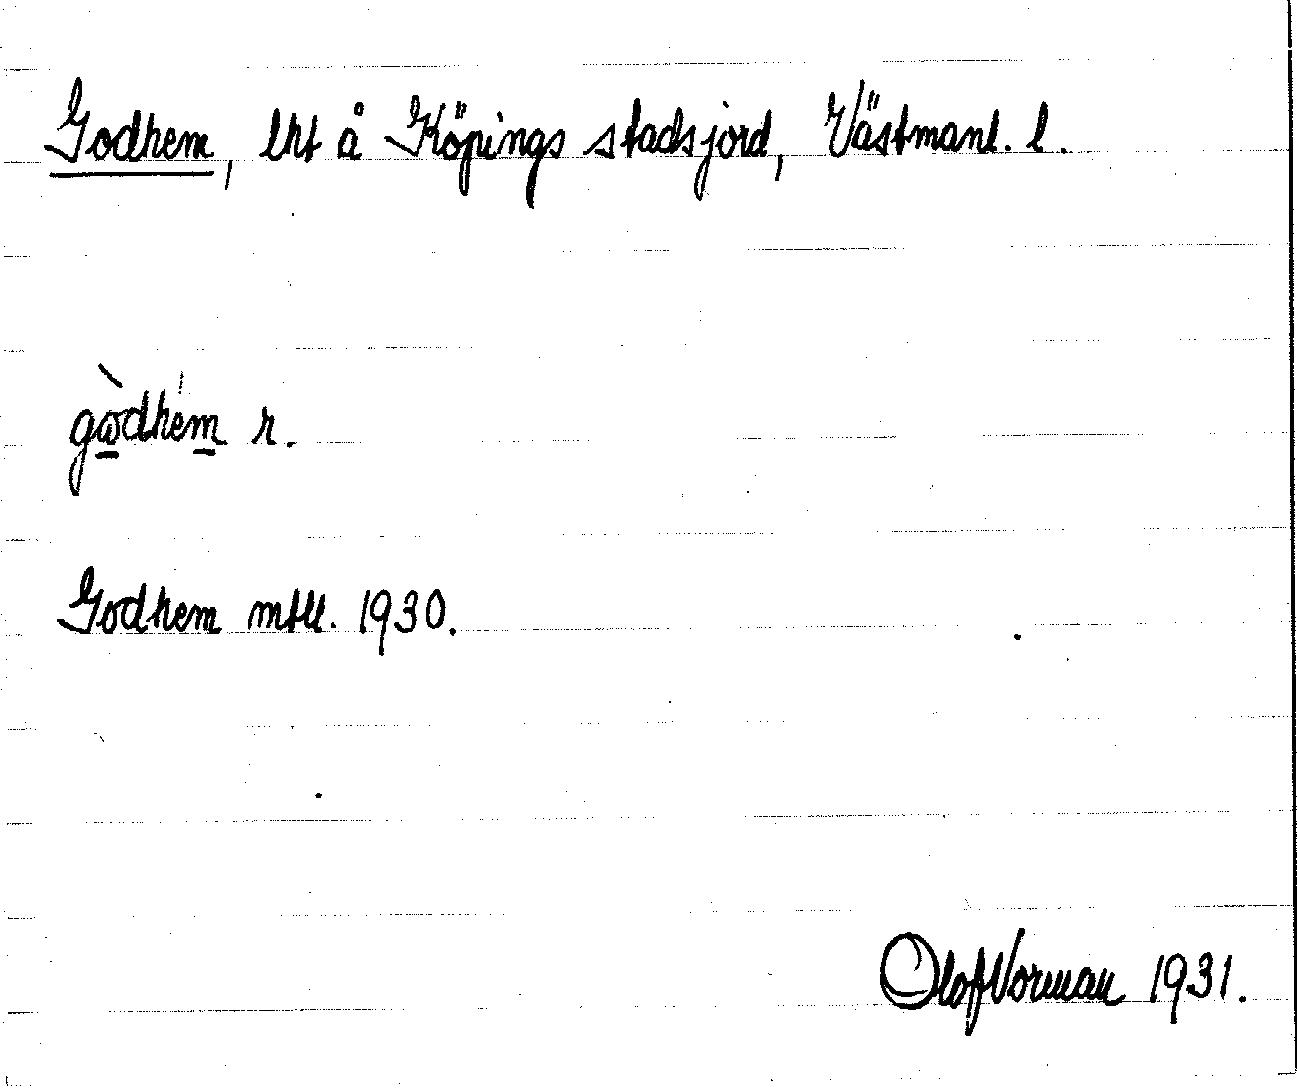 Godhem, lht å Köpings stadsjord, Västmanl. l.
gὼdhem r.
Godhem mtll. 1930.
Olof Vorman 1931.